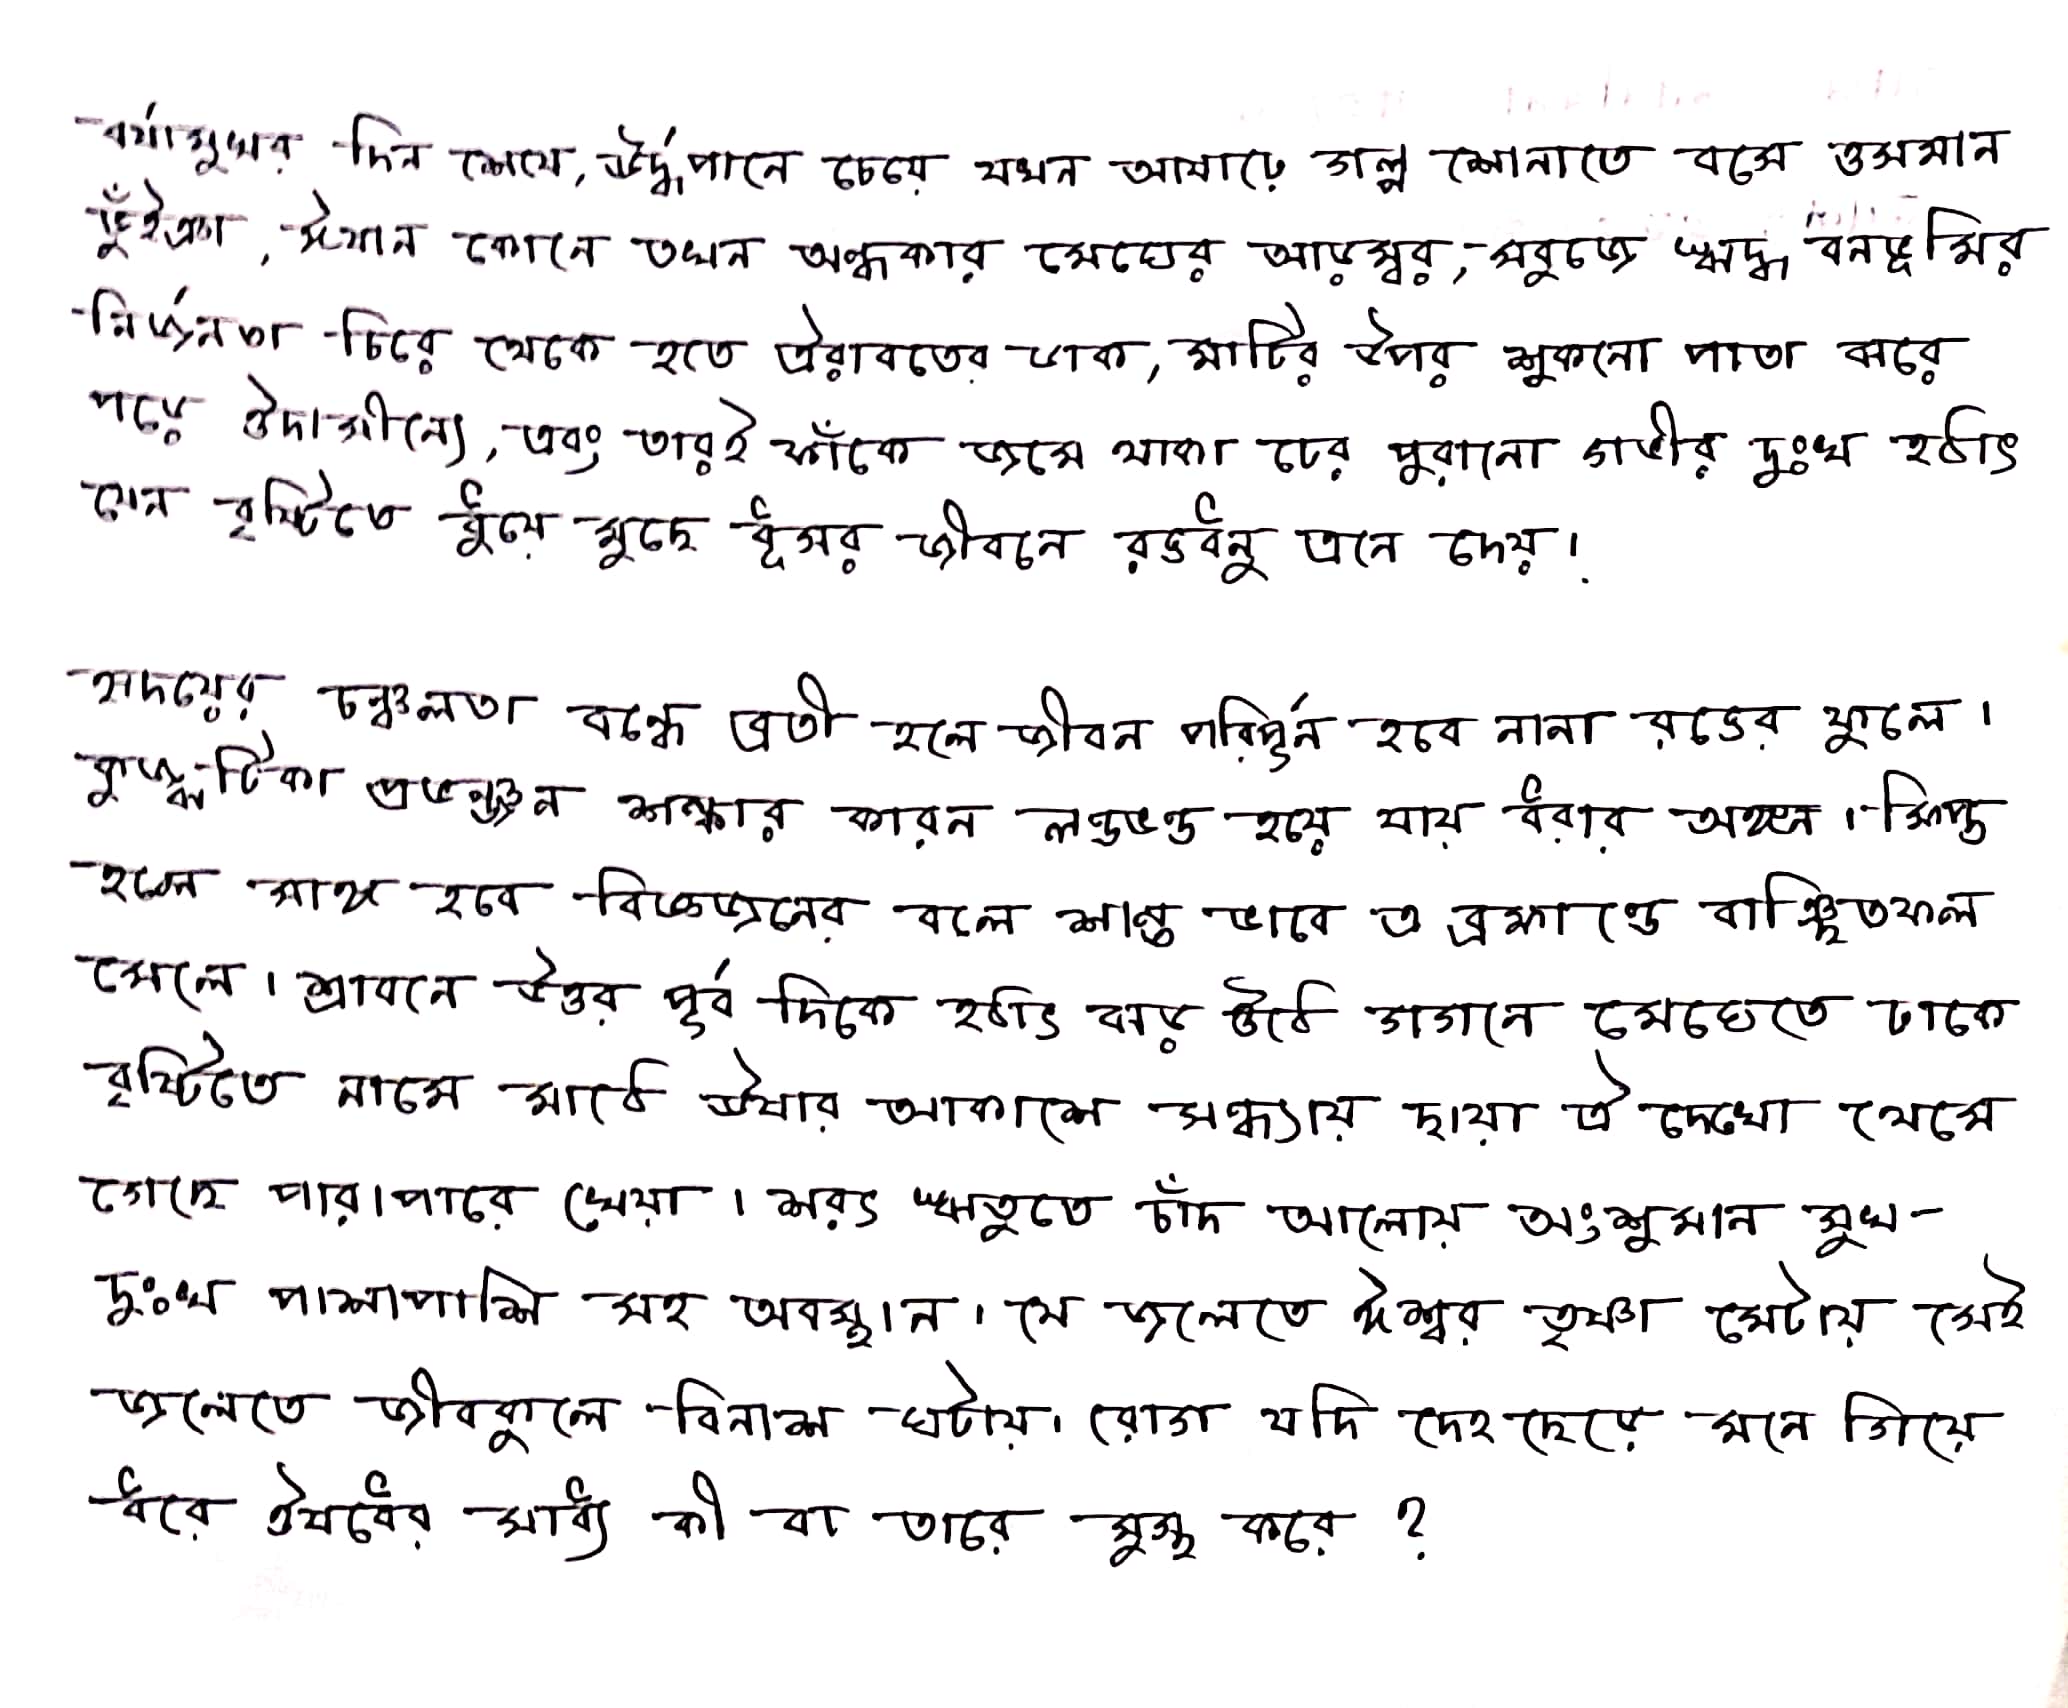 বর্ষামুখর দিন শেষে, ঊর্দ্ধপানে চেয়ে যখন আষাঢ়ে গল্প শোনাতে বসে ওসমান
ভুঁইঞা, ঈষান কোনে তখন অন্ধকার মেঘের আড়ম্বর, সবুজে ঋদ্ধ বনভূমির
নির্জনতা চিরে থেকে হতে ঐরাবতের ডাক, মাটির উপর শুকনো পাতা ঝরে
পড়ে ঔদাসীন্যে, এবং তারই ফাঁকে জমে থাকা ঢের পুরানো গভীর দুঃখ হঠাৎ
যেন বৃষ্টিতে ধুঁয়ে মুছে ধূসর জীবনে রঙধনু এনে দেয়।
হৃদয়ের চঞ্চলতা বন্ধে ব্রতী হলে জীবন পরিপূর্ন হবে নানা রঙের ফুলে।
কুজ্ঝটিকা প্রভঞ্জন শঙ্কার কারন লণ্ডভণ্ড হয়ে যায় ধরার অঙ্গন। ক্ষিপ্ত
হলে সাঙ্গ হবে বিজ্ঞজনের বলে শান্ত ভাবে এ ব্রহ্মাণ্ডে বাঞ্ছিতফল
মেলে। শ্রাবনে উত্তর পূর্ব দিকে হঠাৎ ঝড় উঠে গগনে মেঘেতে ঢাকে
বৃষ্টিতে নামে মাঠে ঊষার আকাশে সন্ধ্যায় ছায়া ঐ দেখো থেমে
গেছে পারাপারে খেয়া। শরৎ ঋতুতে চাঁদ আলোয় অংশুমান সুখ-
দুঃখ পাশাপাশি সহ অবস্থান। যে জলেতে ঈশ্বর তৃষ্ণা মেটায় সেই
জলেতে জীবকুলে বিনাশ ঘটায়। রোগ যদি দেহ ছেড়ে মনে গিয়ে
ধরে ঔষধের সাধ্য কী বা তারে সুস্থ করে ?